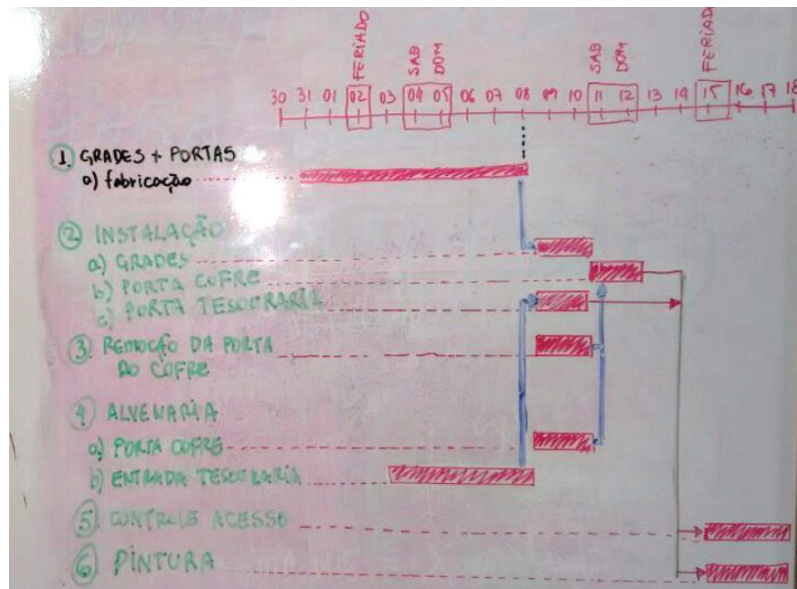 FERIADO SAB DOM SAB DOM FERIADO
30 31 01 02 03 04 05 06 07 08 09 10 11 12 13 14 15 16 17 18
1. GRADES + PORTAS
a) fabricação
2 INSTALAÇÃO
a) GRADES
b) PORTA COFRE
c) PORTA TESOURARIA
3 REMOÇÃO DA PORTA
DO COFRE
4 ALVENARIA
a) PORTA COFRE
b) ENTRADA TESOURARIA
5 CONTROLE ACESSO
6 PINTURA